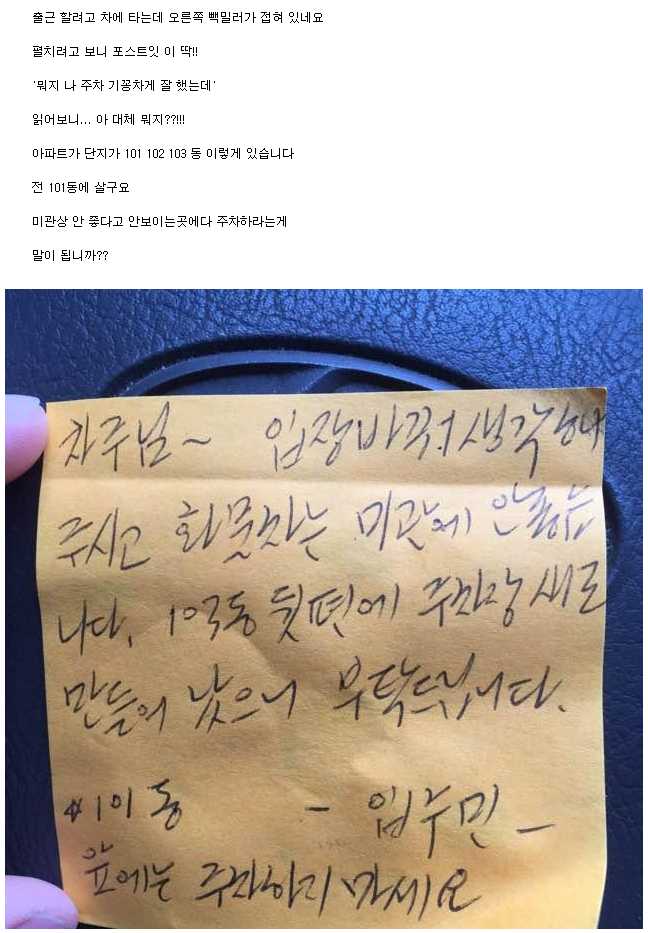 출근 할려고 차에 타는데 오른쪽 빽밀러가 접혀 있네요
펼치려고 보니 포스트잇 이 딱!!
'뭐지 나 주차 기꽁차게 잘 했는데'
읽어보니... 아 대체 뭐지??!!!
아파트가 단지가 101 102 103 동 이렇게 있습니다
전 101동에 살구요
미관상 안 좋다고 안보이는곳에다 주차하라는게
말이 됩니까??
차주님~ 입장바꿔
주시고 화물차는 미관에 안좋습
니다. 103동 뒷편에 주차장 새로
만들어 놨으니 부탁드립니다.
*101동 - 입주민 -
앞에는 주차하지 마세요